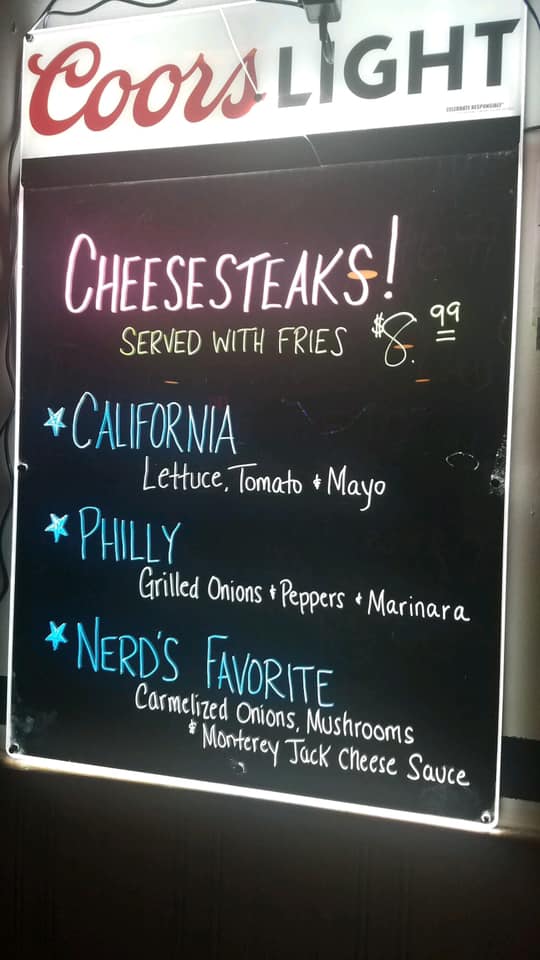 Coors LIGHT
CELEBRATE RESPONSIBLY
CHEESESTEAKS!
SERVED WITH FRIES $8.99
* CALIFORNIA
Lettuce, Tomato & Mayo
* PHILLY
Grilled Onions & Peppers & Marinara
* NERD'S FAVORITE
Carmelized Onions, Mushrooms
& Monterey Jack Cheese Sauce